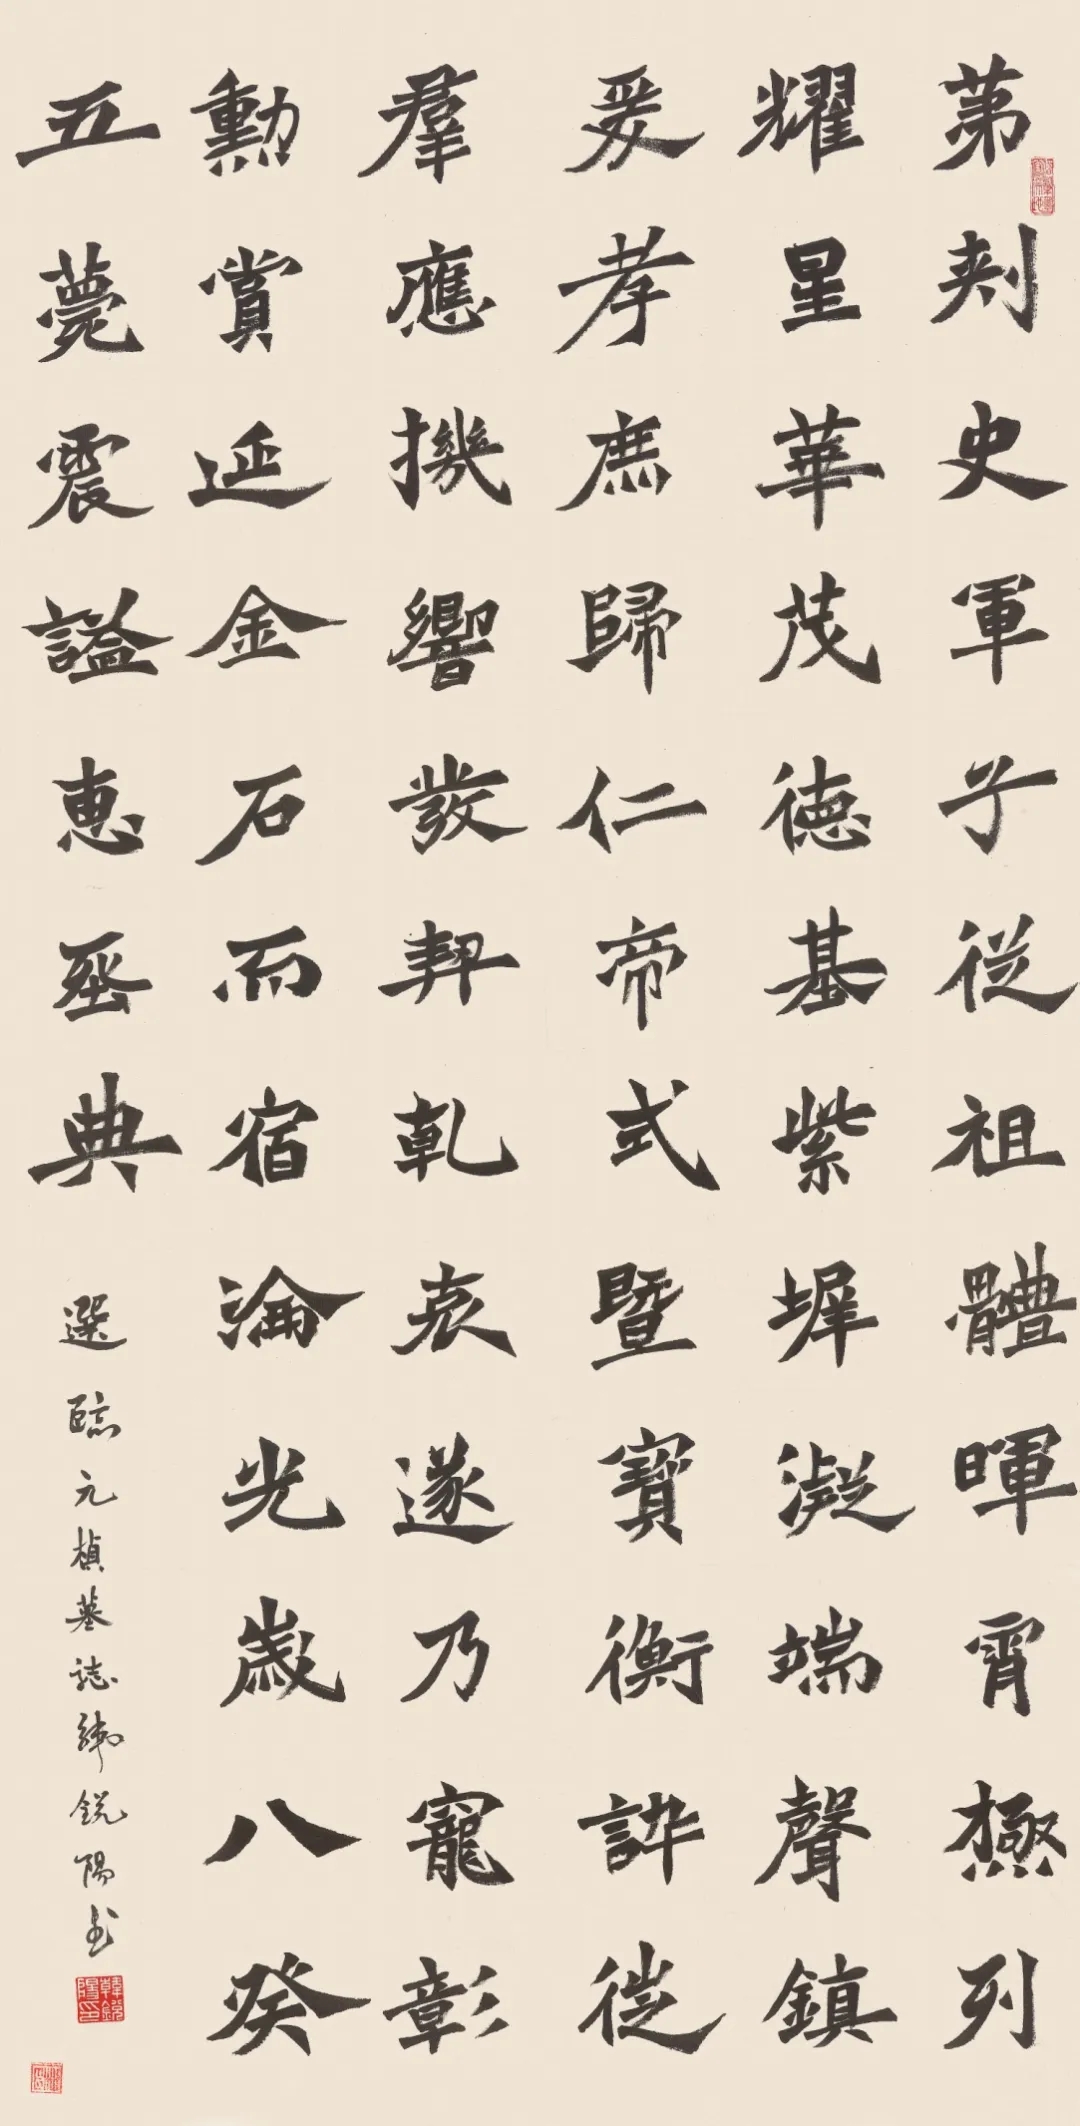 苐刾史軍子從祖體暉霄極列
耀星華茂德基紫墀凝端聲鎮
爰孝庶歸仁帝式暨寶衡訊徙
羣應機響發契乾衷遂乃寵彰
勳賞延金石而宿淪光歲八癸
五薨震謚惠丞典
選臨元楨墓誌韓銳陽書
韓銳陽印